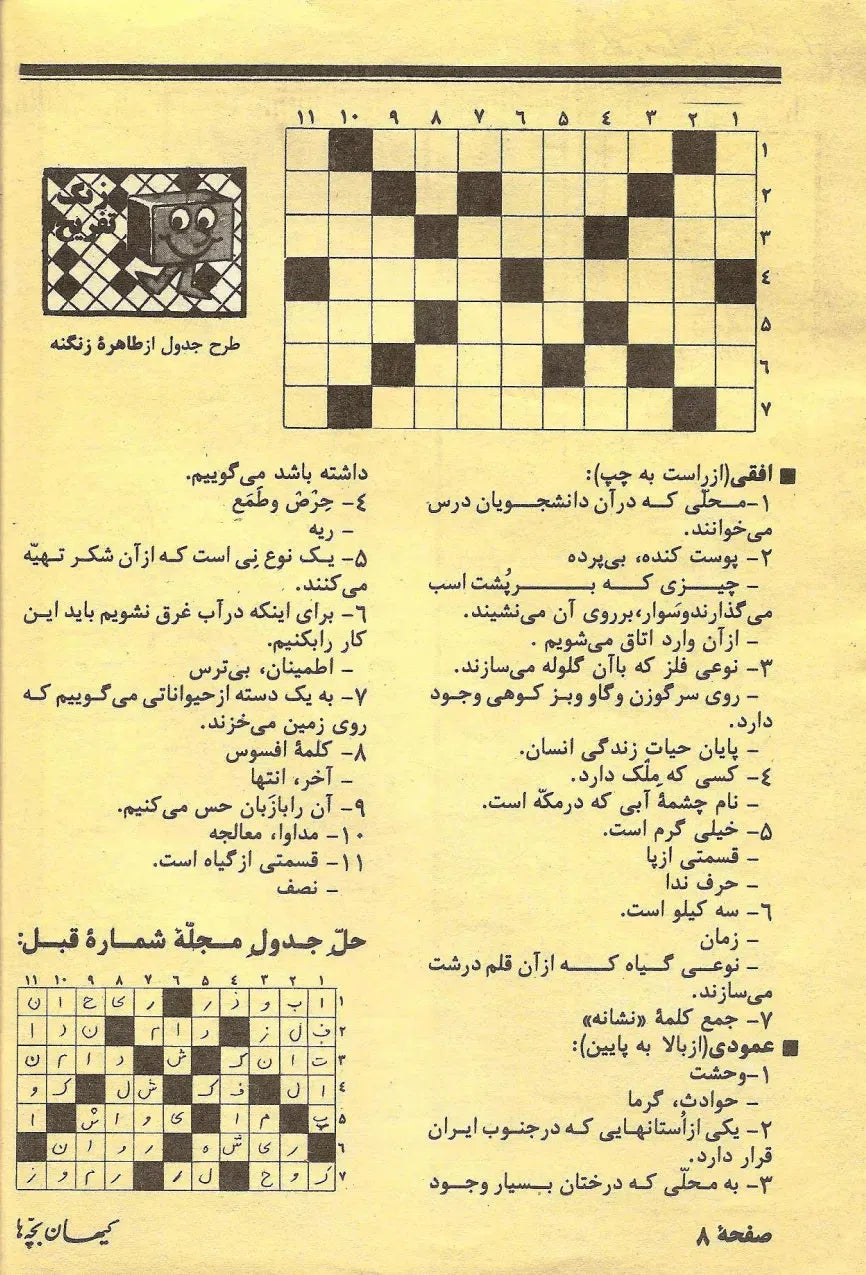 ۱۱ ۱۰ ۹ ۸ ۷ ۶ ۵ ۴ ۳ ۲ ۱
۱
۲
۳
۴
۵
۶
۷
زنگ
تفریح
طرح جدول از طاهرهٔ زنگنه
■ افقی(ازراست به چپ):
۱-محلّی که درآن دانشجویان درس
می‌خوانند.
۲- پوست کنده، بی‌پرده
- چیزی که برپُشت اسب
می‌گذارندوسَوار،برروی آن می‌نشیند.
- ازآن وارد اتاق می‌شویم .
۳- نوعی فلز که باآن گلوله می‌سازند.
- روی سرگوزن وگاو وبز کوهی وجود
دارد.
- پایان حیاتِ زندگی انسان.
۴- کسی که مِلْک دارد.
- نام چشمهٔ آبی که درمکّه است.
۵- خیلی گرم است.
- قسمتی ازپا
- حرف ندا
۶- سه کیلو است.
- زمان
- نوعی گیاه که ازآن قلم درشت
می‌سازند.
۷- جمع کلمهٔ «نشانه»
■ عمودی(ازبالا به پایین):
۱-وحشت
- حوادث، گرما
۲- یکی ازاُستانهایی که درجنوب ایران
قرار دارد.
۳- به محلّی که درختان بسیار وجود
داشته باشد می‌گوییم.
۴- حِرْصْ وطَمَع
- ریه
۵- یک نوع نِی است که ازآن شکر تهیّه
می‌کنند.
۶- برای اینکه درآب غرق نشویم باید این
کار رابکنیم.
- اطمینان، بی‌ترس
۷- به یک دسته ازحیواناتی می‌گوییم که
روی زمین می‌خزند.
۸- کلمهٔ افسوس
- آخر، انتها
۹- آن رابازَبان حس می‌کنیم.
۱۰- مداوا، معالجه
۱۱- قسمتی ازگیاه است.
- نصف
حلّ جدولِ مجلّهٔ شمارهٔ قبل:
۱۱ ۱۰ ۹ ۸ ۷ ۶ ۵ ۴ ۳ ۲ ۱
۱ ا ب و ذ ر ر ی ح ا ن
۲ ف ل ز د ا م ن د ا
۳ ت ا ن ک ش د ا م ن
۴ ا ل ف ک ش ل ک و
۵ ب م ا ی و ا ش ا
۶ ر ی ش ه ر و ا ن
۷ ک و ح ل ر ر م و ز
صفحهٔ ۸
کیهان بچّه‌ها